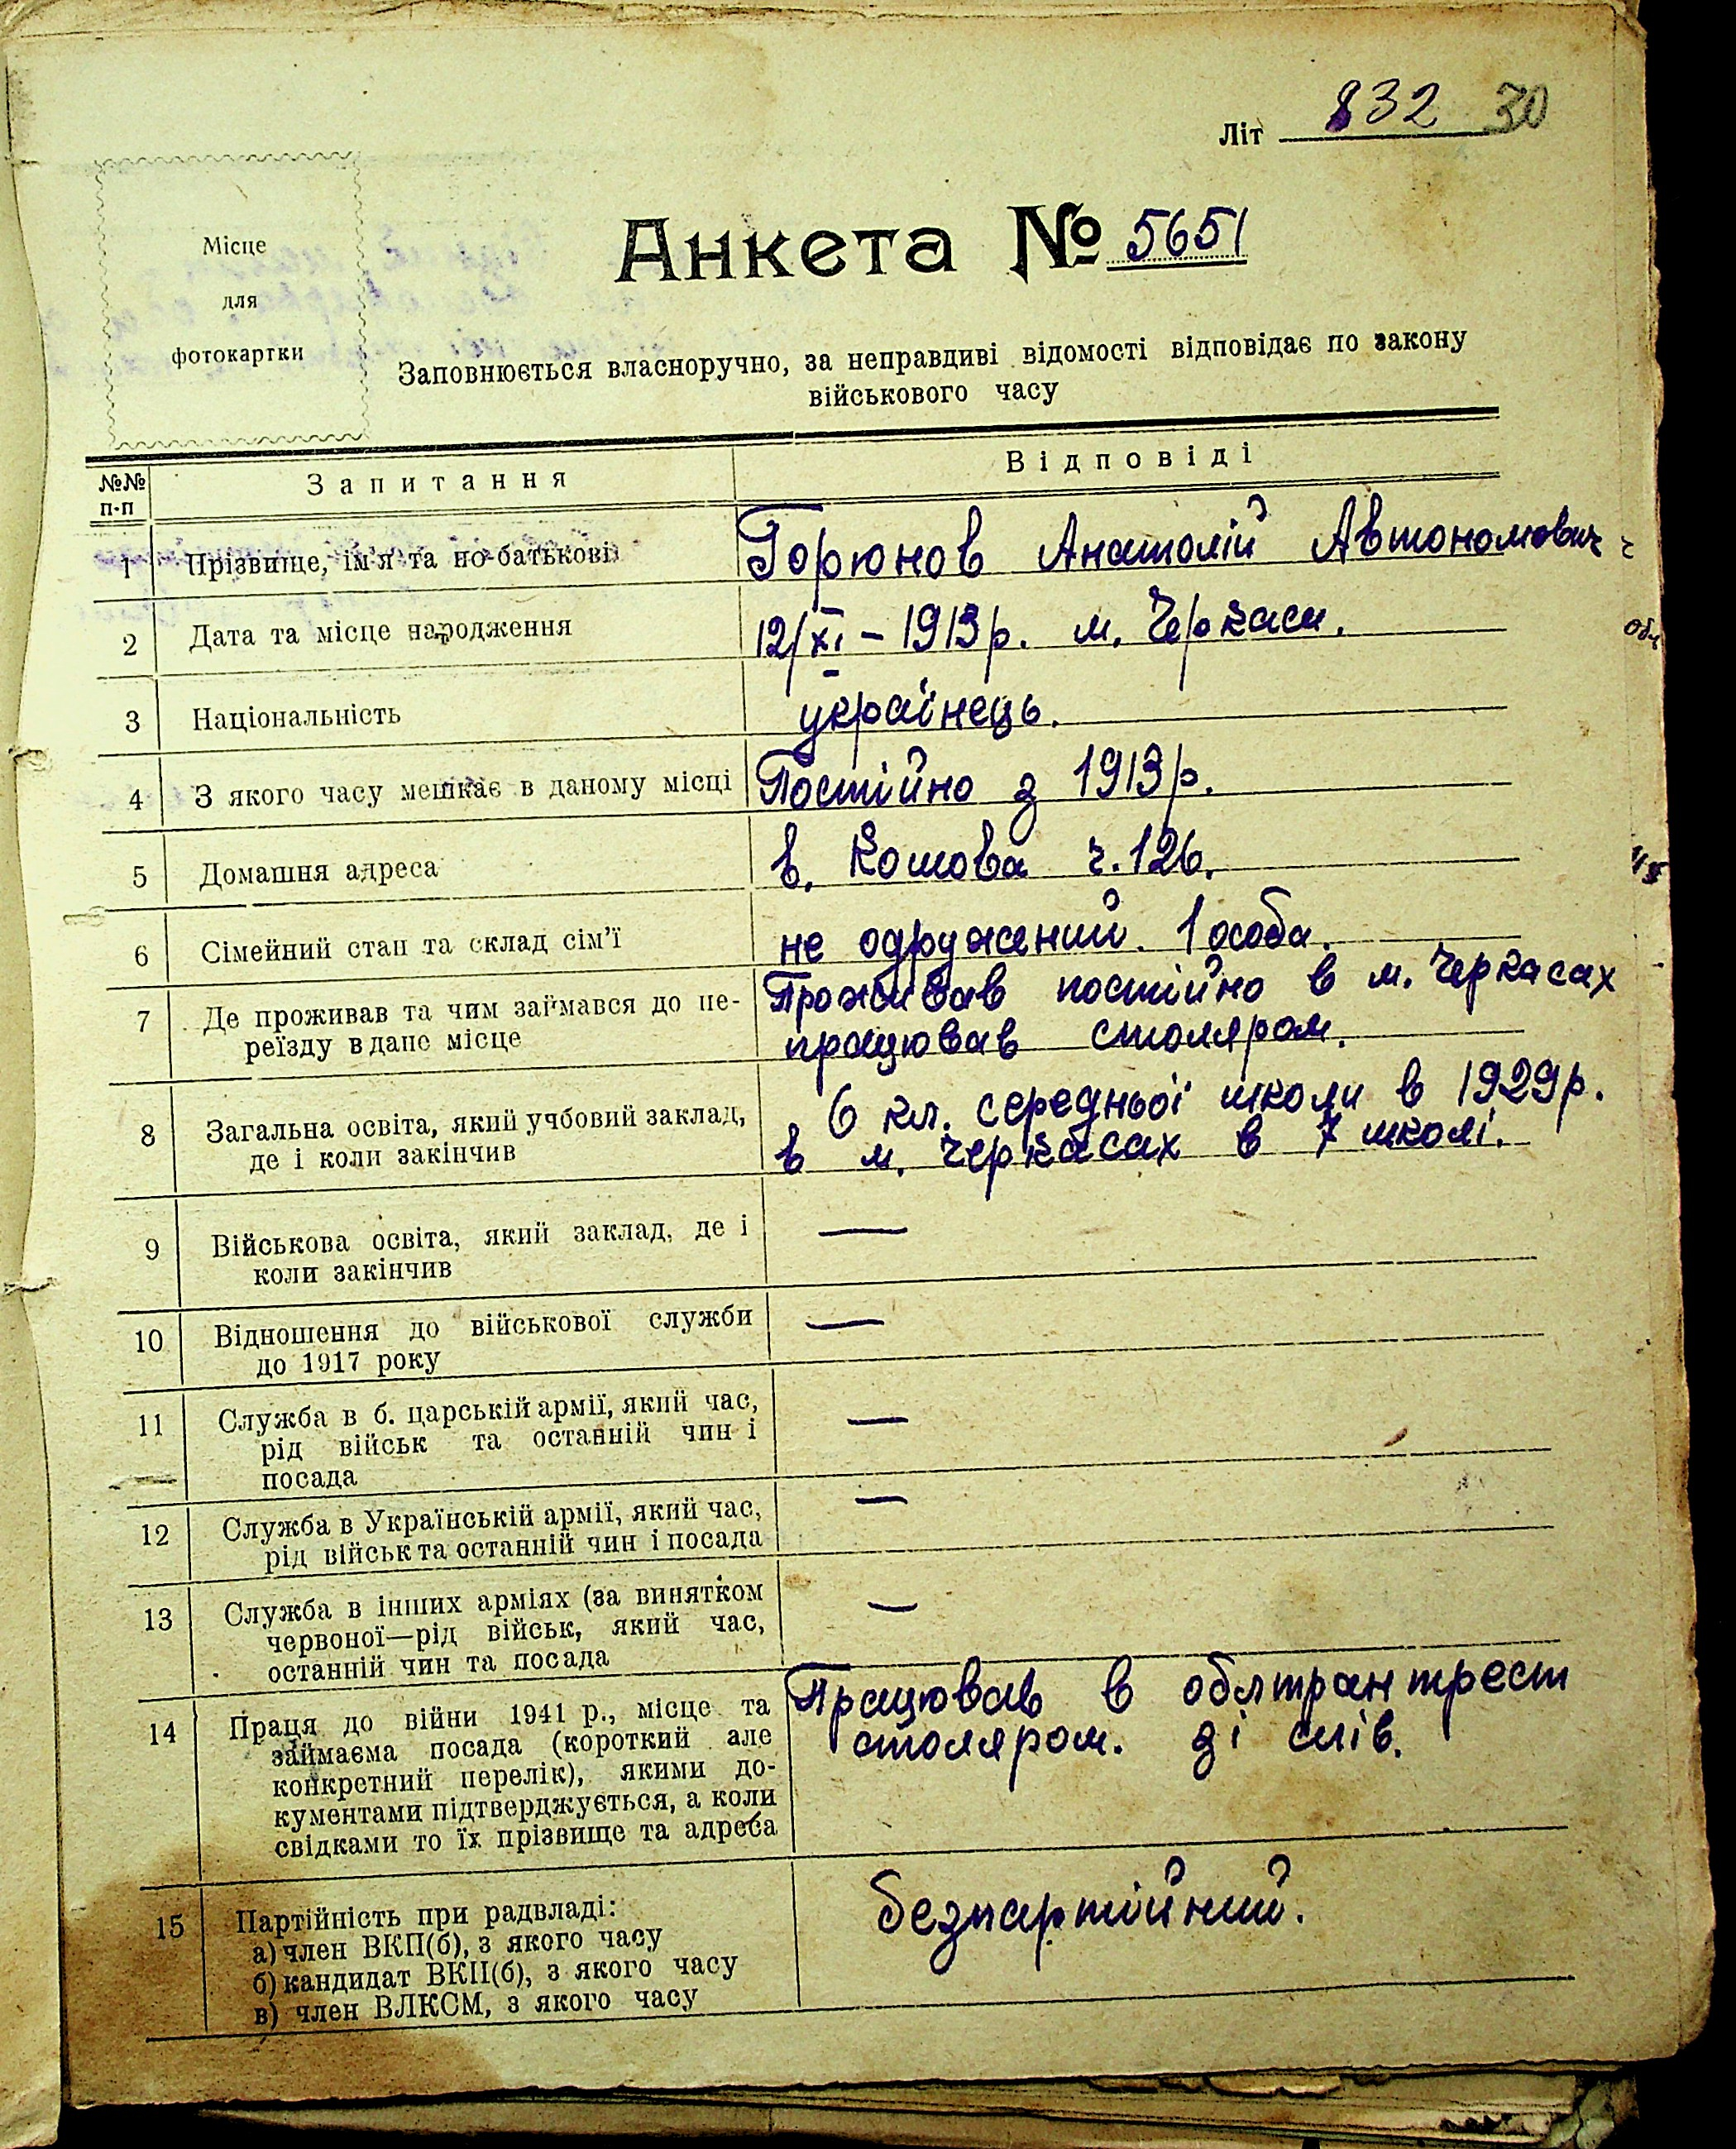 Літ 832 30
Місце
для
фотокартки
Анкета № 5651
Заповнюється власноручно, за неправдиві відомості відповідає по закону
військового часу
№№ п-п Запитання Відповіді
1 Прізвище, ім'я та по-батькові Горюнов Анатолій Автономович
2 Дата та місце народження 12/XI – 1913 р. м. Черкаси.
3 Національність українець.
4 З якого часу мешкає в даному місці Постійно з 1913 р.
5 Домашня адреса в. Котова ч. 126.
6 Сімейний стан та склад сім'ї не одружений. 1 особа.
7 Де проживав та чим займався до пе-
реїзду в дане місце
Проживав постійно в м. Черкасах
працював столяром.
8 Загальна освіта, який учбовий заклад,
де і коли закінчив
6 кл. середньої школи в 1929 р.
в м. Черкасах в 7 школі.
9 Військова освіта, який заклад, де і
коли закінчив
—
10 Відношення до військової служби
до 1917 року
—
11 Служба в б. царській армії, який час,
рід військ та останній чин і
посада
—
12 Служба в Українській армії, який час,
рід військ та останній чин і посада
—
13 Служба в інших арміях (за винятком
червоної—рід військ, який час,
останній чин та посада
—
14 Праця до війни 1941 р., місце та
займаєма посада (короткий але
конкретний перелік), якими до-
кументами підтверджується, а коли
свідками то їх прізвище та адреса
Працював в облтрантрест
столяром. зі слів.
15 Партійність при радвладі:
а) член ВКП(б), з якого часу
б) кандидат ВКП(б), з якого часу
в) член ВЛКСМ, з якого часу
безпартійний.